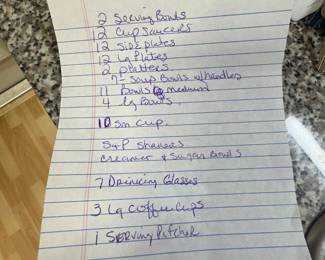 2 Serving Bowls
12 Cup Saucers
12 Side plates
12 Lg Plates
2 platters
7 - Soup Bowls w/handles
11 Bowls medium
4 Lg Bowls
10 Sm Cup.
S+P Shakers
creamer + Sugar Bowls
7 Drinking Glasses
3 Lg Coffee Cups
1 Serving Pitcher